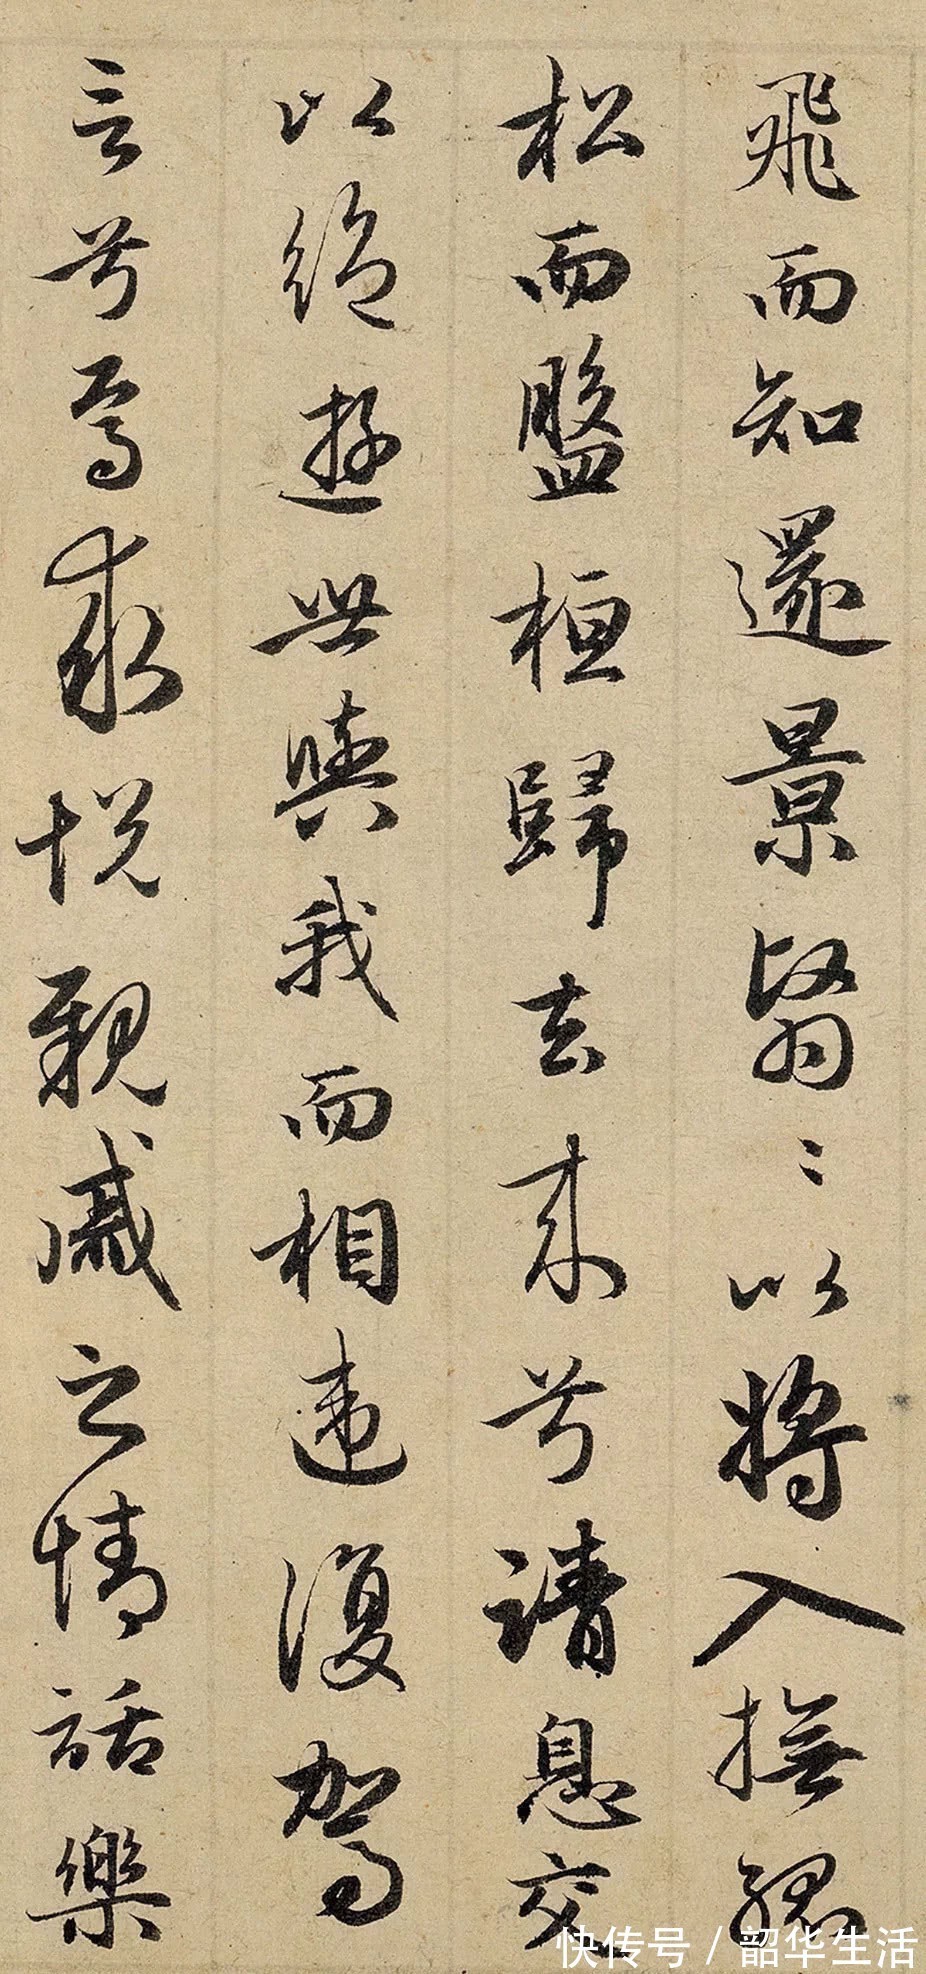 飛而知還景翳〻以將入撫孤
松而盤桓歸去来兮請息交
以絕遊世與我而相違復駕
言兮焉求悅親戚之情話樂
快传号/韶华生活